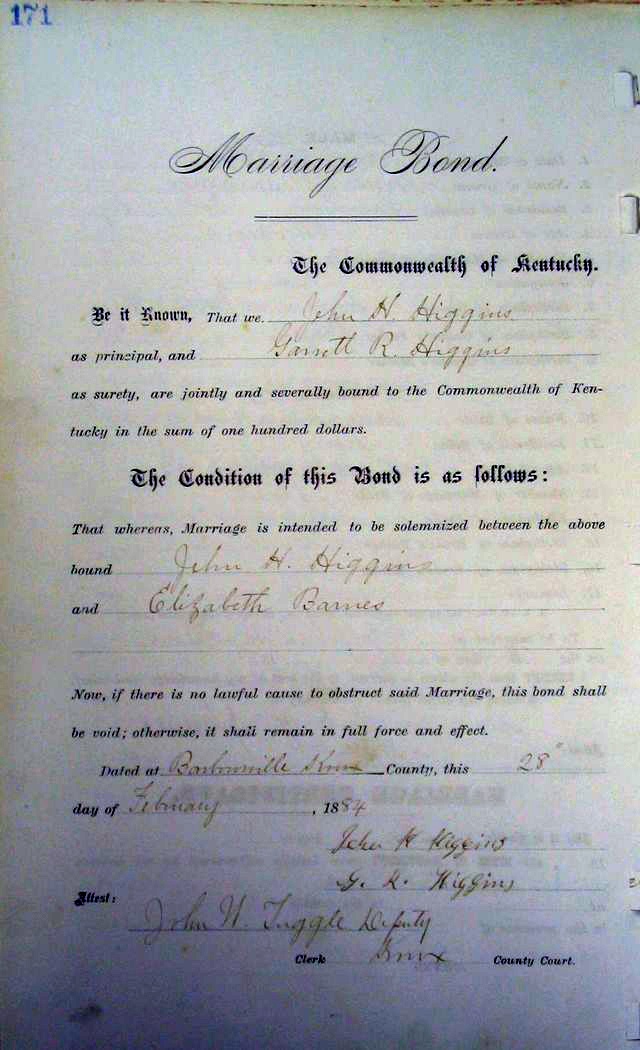 171
Marriage Bond.
The Commonwealth of Kentucky.
Be it Known, That we John H. Higgins
as principal, and Garrett R. Higgins
as surety, are jointly and severally bound to the Commonwealth of Ken-
tucky in the sum of one hundred dollars.
The Condition of this Bond is as follows:
That whereas, Marriage is intended to be solemnized between the above
bound John H. Higgins
and Elizabeth Barnes
Now, if there is no lawful cause to obstruct said Marriage, this bond shall
be void; otherwise, it shall remain in full force and effect.
Dated at Barbourville Knox County, this 28"
day of February, 1884
John H Higgins
G. R. Higgins
Attest:
John W. Tuggle Deputy
Clerk Knox County Court.